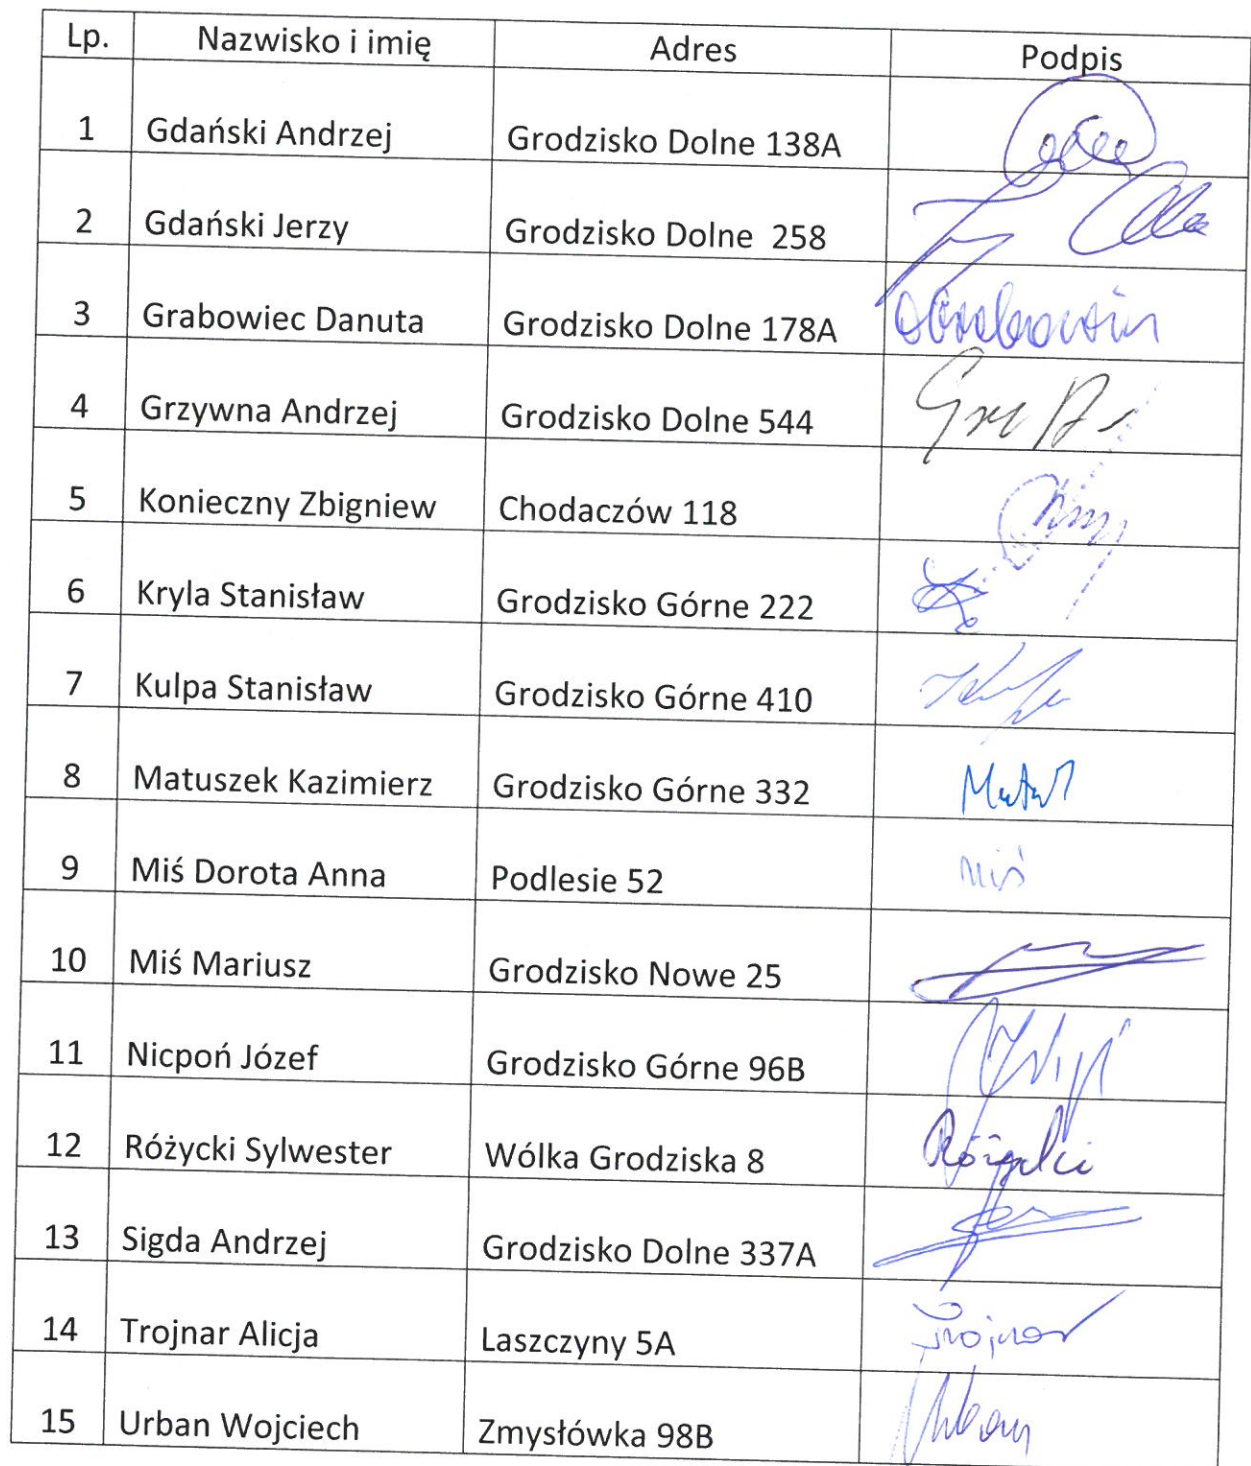 Lp. Nazwisko i imię Adres Podpis
1 Gdański Andrzej Grodzisko Dolne 138A
2 Gdański Jerzy Grodzisko Dolne 258
3 Grabowiec Danuta Grodzisko Dolne 178A
4 Grzywna Andrzej Grodzisko Dolne 544
5 Konieczny Zbigniew Chodaczów 118
6 Kryla Stanisław Grodzisko Górne 222
7 Kulpa Stanisław Grodzisko Górne 410
8 Matuszek Kazimierz Grodzisko Górne 332
9 Miś Dorota Anna Podlesie 52 Miś
10 Miś Mariusz Grodzisko Nowe 25
11 Nicpoń Józef Grodzisko Górne 96B
12 Różycki Sylwester Wólka Grodziska 8 Różycki
13 Sigda Andrzej Grodzisko Dolne 337A
14 Trojnar Alicja Laszczyny 5A Trojnar
15 Urban Wojciech Zmysłówka 98B Urban